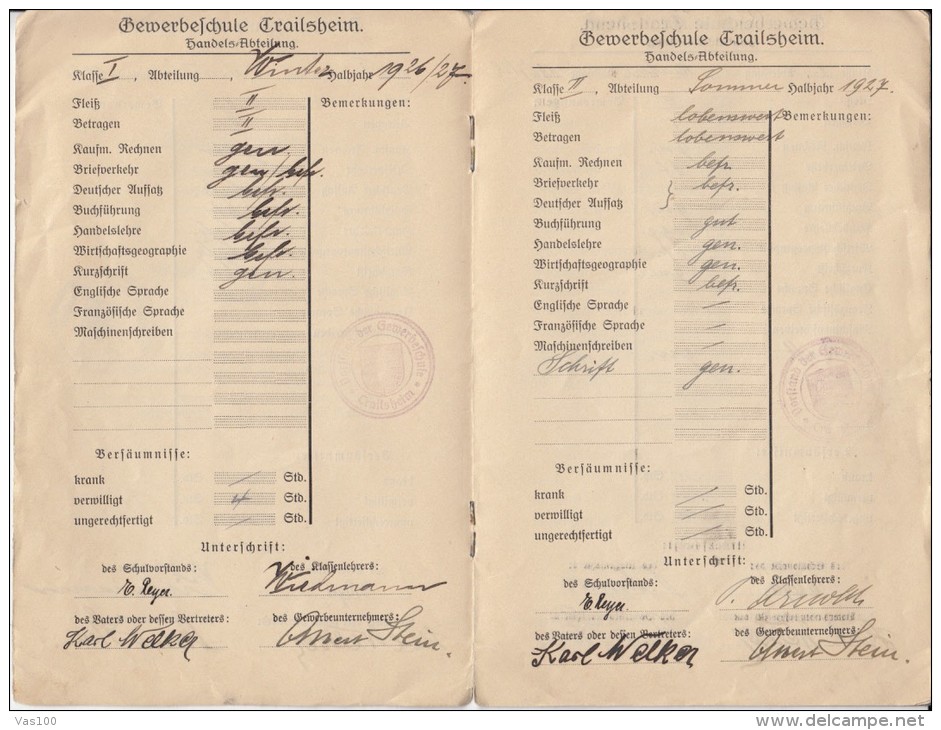 Gewerbeschule Crailsheim.
Handels-Abteilung.
Klasse I, Abteilung , Winter Halbjahr 1926/27.
Bemerkungen:
Fleiß II
Betragen II
Kaufm. Rechnen gen
Briefverkehr gen/befr.
Deutscher Aufsatz befr.
Buchführung befr.
Handelslehre befr.
Wirtschaftsgeographie befr.
Kurzschrift gen.
Englische Sprache
Französische Sprache
Maschinenschreiben
der Gewerbeschule
Crailsheim
Versäumnisse:
krank / Std.
verwilligt 4 Std.
ungerechtfertigt / Std.
Unterschrift:
des Schulvorstands: des Klassenlehrers:
Wiedmann
des Vaters oder dessen Vertreters: des Gewerbeunternehmers:
Karl Welker Stein.
Gewerbeschule Crailsheim.
Handels-Abteilung.
Klasse II, Abteilung Sommer Halbjahr 1927.
Fleiß lobenswert Bemerkungen:
Betragen lobenswert
Kaufm. Rechnen befr.
Briefverkehr } befr.
Deutscher Aufsatz
Buchführung gut
Handelslehre gen.
Wirtschaftsgeographie gen.
Kurzschrift befr.
Englische Sprache —
Französische Sprache —
Maschinenschreiben —
Schrift gen.
Vorstand der
Versäumnisse:
krank / Std.
verwilligt / Std.
ungerechtfertigt / Std.
Unterschrift:
des Schulvorstands: des Klassenlehrers:
Arnold
des Vaters oder dessen Vertreters: des Gewerbeunternehmers:
Karl Welker Stein.
Vas100
delcampe.net